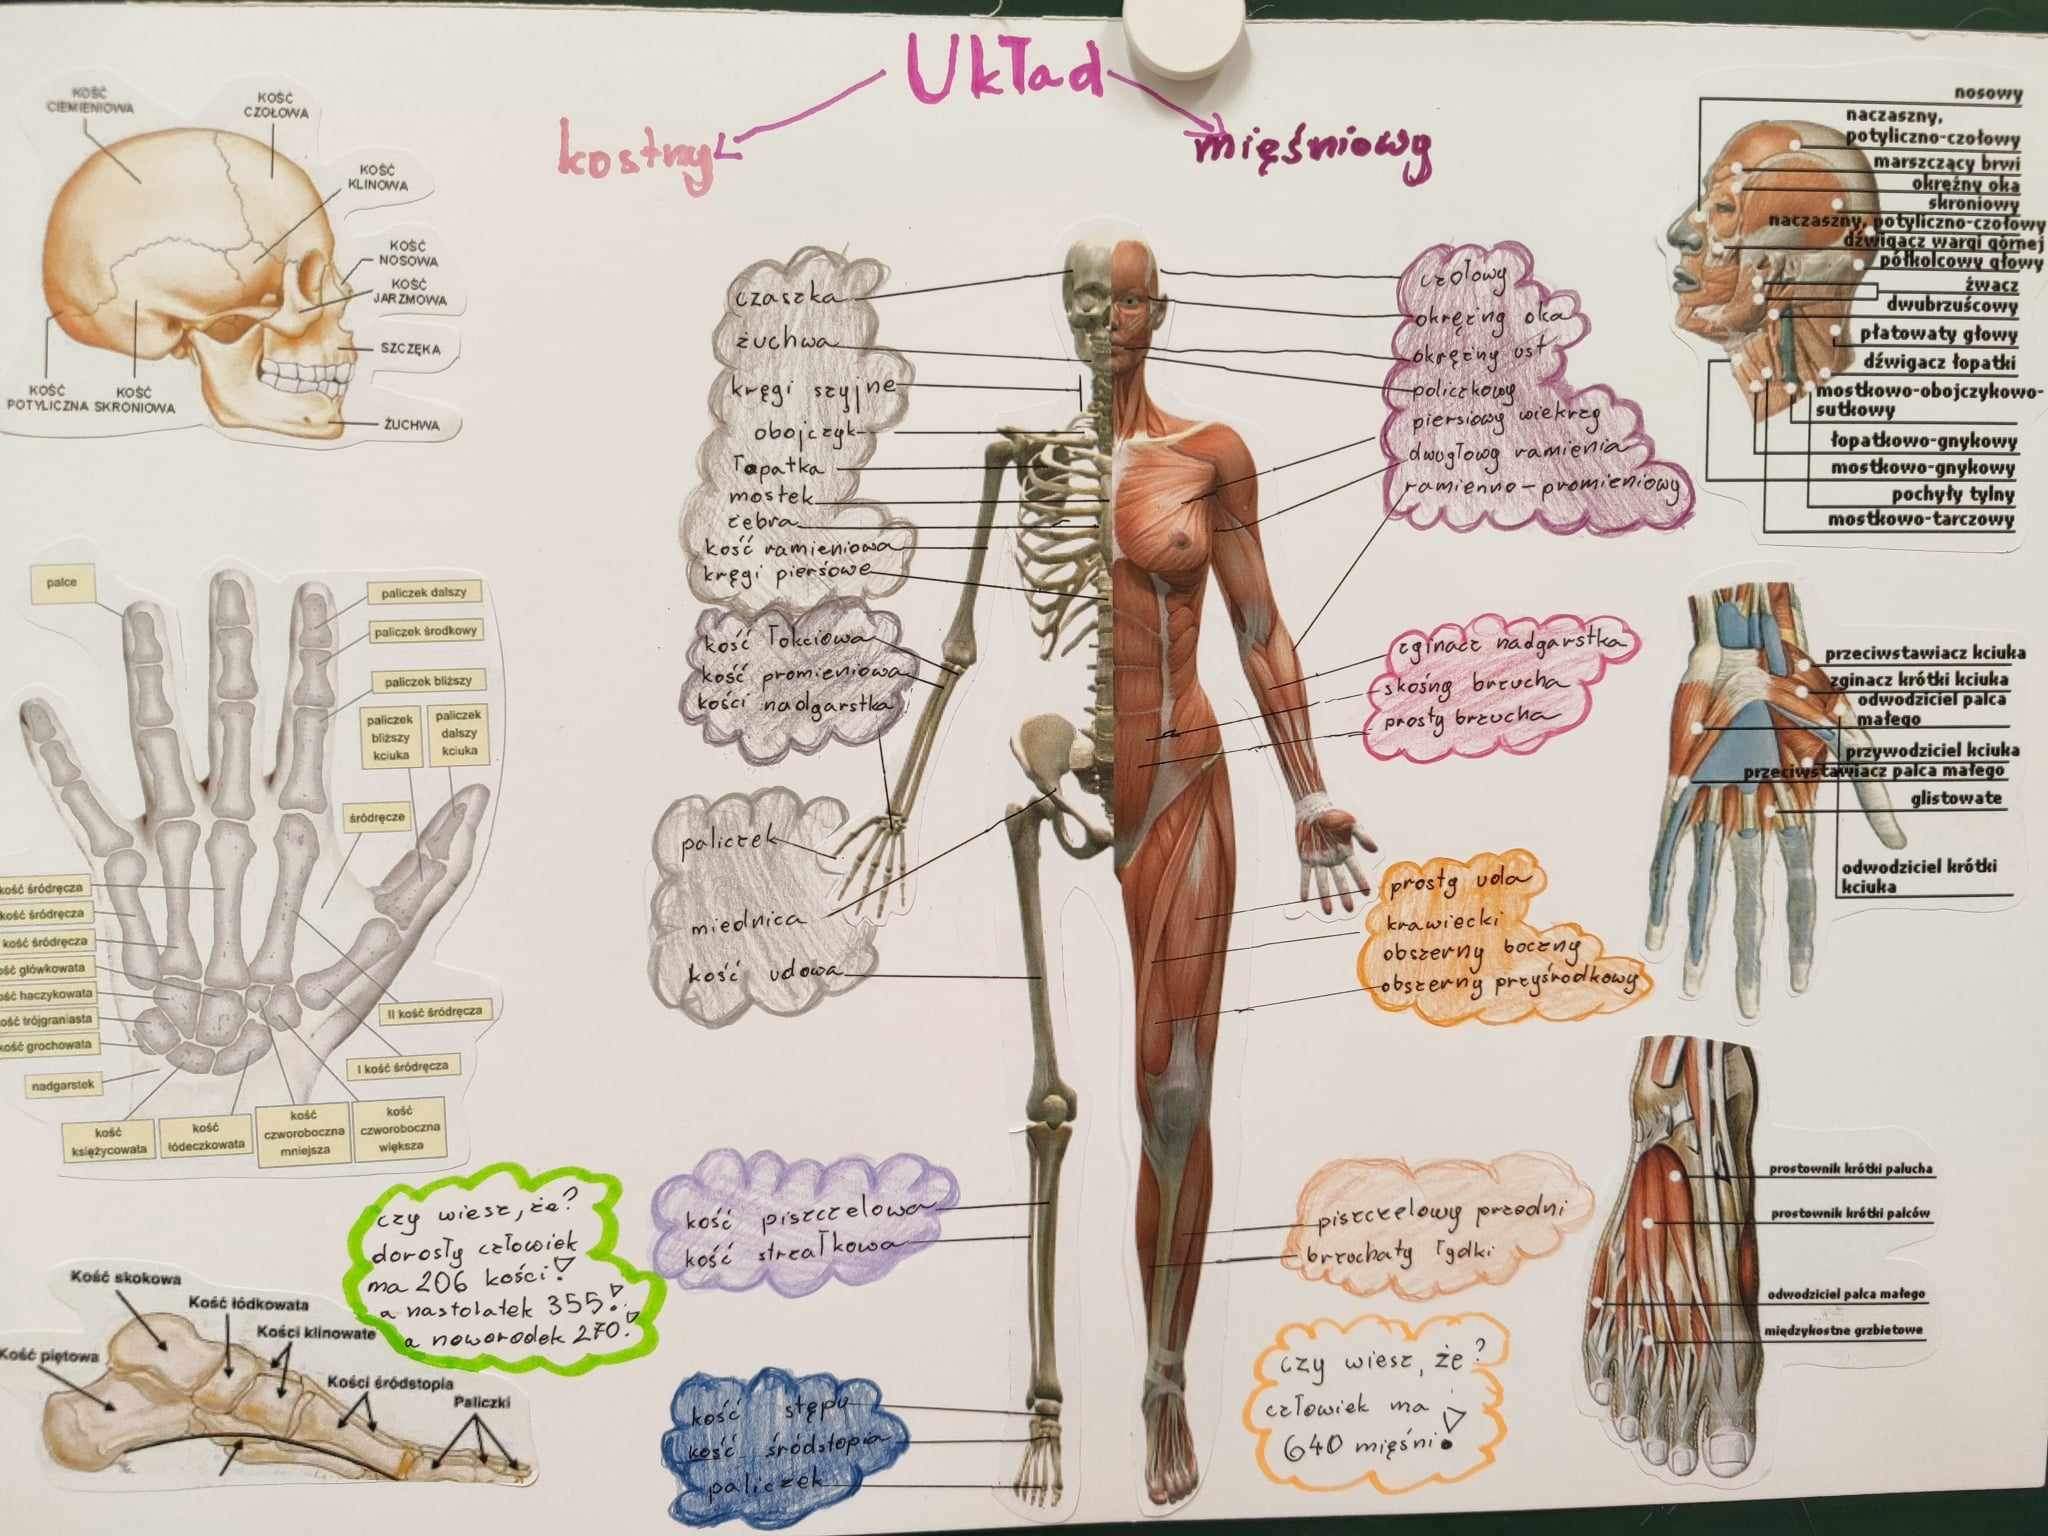 Układ
kostny
mięśniowy
KOŚĆ
CIEMIENIOWA
KOŚĆ
CZOŁOWA
KOŚĆ
KLINOWA
KOŚĆ
NOSOWA
KOŚĆ
JARZMOWA
SZCZĘKA
KOŚĆ
POTYLICZNA
KOŚĆ
SKRONIOWA
ŻUCHWA
palce
paliczek dalszy
paliczek środkowy
paliczek bliższy
paliczek
bliższy
kciuka
paliczek
dalszy
kciuka
śródręcze
kość śródręcza
kość śródręcza
kość śródręcza
ość główkowata
ość haczykowata
ość trójgraniasta
kość grochowata
nadgarstek
II kość śródręcza
I kość śródręcza
kość
księżycowata
kość
łódeczkowata
kość
czworoboczna
mniejsza
kość
czworoboczna
większa
czy wiesz, że?
dorosły człowiek
ma 206 kości!
a nastolatek 355!
a noworodek 270!
Kość skokowa
Kość łódkowata
Kości klinowate
Kość piętowa
Kości śródstopia
Paliczki
czaszka
żuchwa
kręgi szyjne
obojczyk
łopatka
mostek
żebra
kość ramieniowa
kręgi piersowe
kość łokciowa
kość promieniowa
kości nadgarstka
paliczek
miednica
kość udowa
kość piszczelowa
kość strzałkowa
kość stępu
kość śródstopia
paliczek
czołowy
okrężny oka
okrężny ust
policzkowy
piersiowy wiekrzy
dwugłowy ramienia
ramienno-promieniowy
zginacz nadgarstka
skośny brzucha
prosty brzucha
prosty uda
krawiecki
obszerny boczny
obszerny przyśrodkowy
piszczelowy przedni
brzuchaty łydki
czy wiesz, że?
człowiek ma
640 mięśni!
nosowy
naczaszny,
potyliczno-czołowy
marszczący brwi
okrężny oka
skroniowy
naczaszny, potyliczno-czołowy
dźwigacz wargi górnej
półkolcowy głowy
żwacz
dwubrzuścowy
płatowaty głowy
dźwigacz łopatki
mostkowo-obojczykowo-
sutkowy
łopatkowo-gnykowy
mostkowo-gnykowy
pochyły tylny
mostkowo-tarczowy
przeciwstawiacz kciuka
zginacz krótki kciuka
odwodziciel palca
małego
przywodziciel kciuka
przeciwstawiacz palca małego
glistowate
odwodziciel krótki
kciuka
prostownik krótki palucha
prostownik krótki palców
odwodziciel palca małego
międzykostne grzbietowe